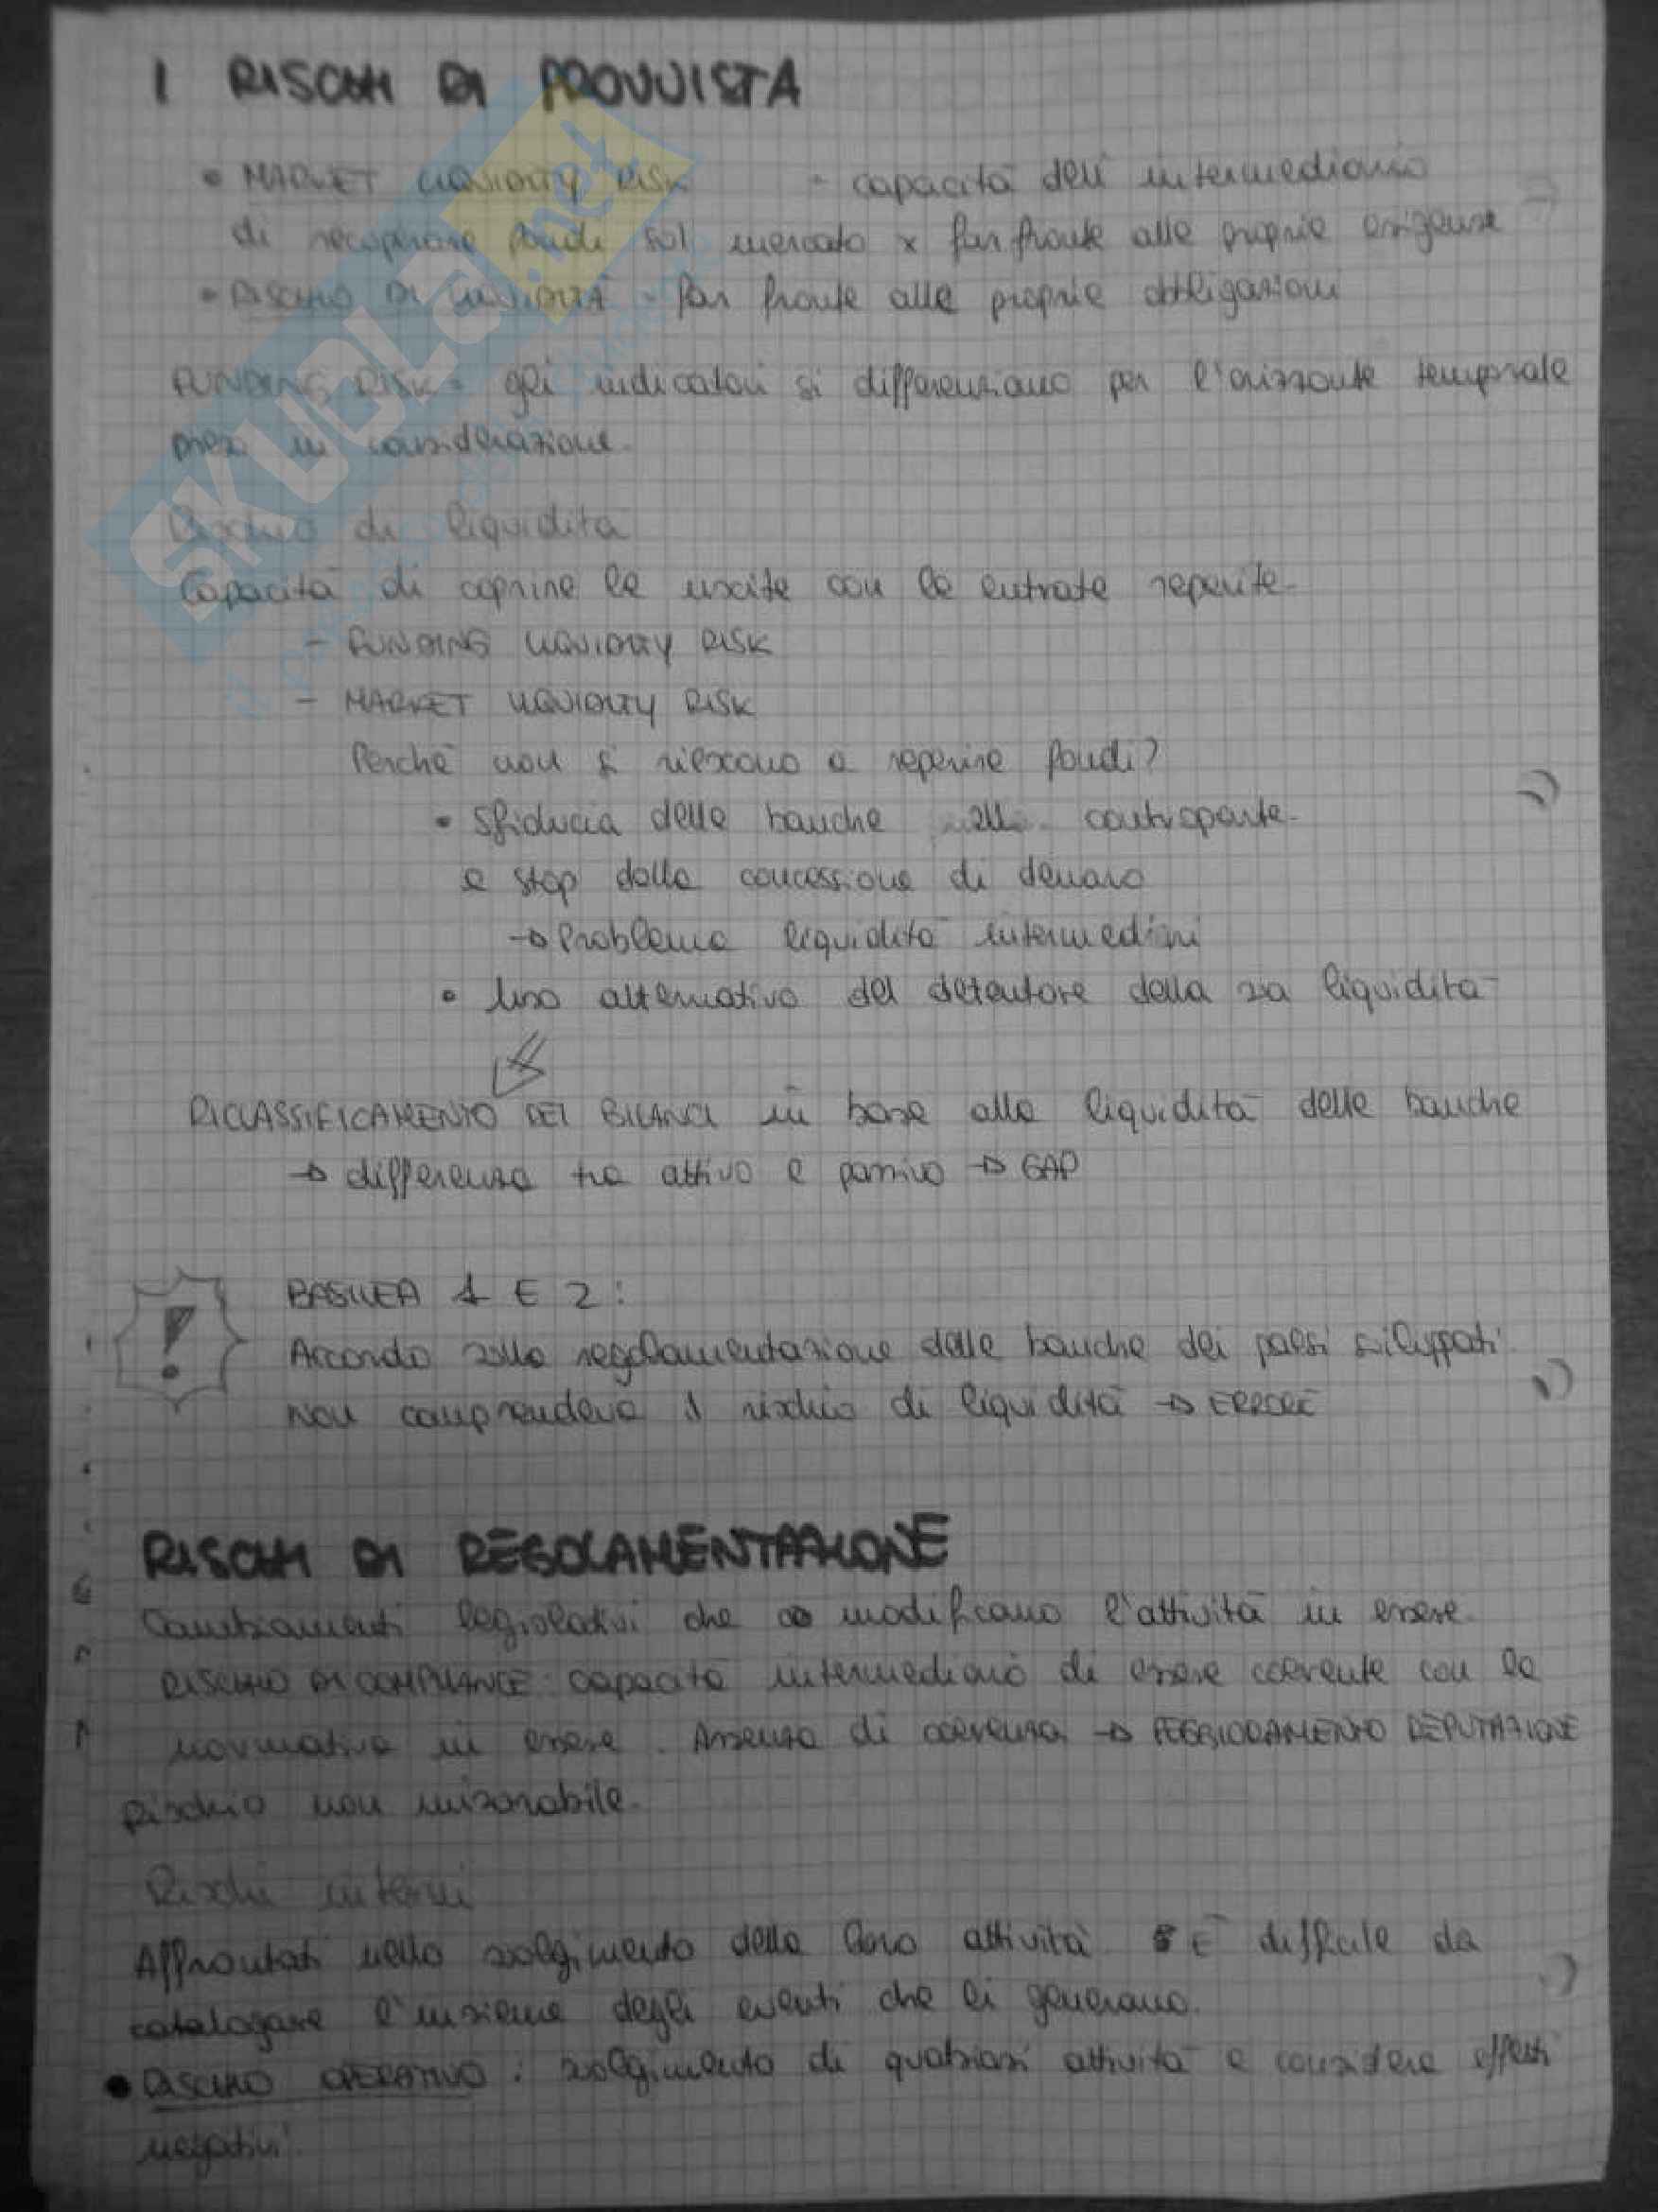 I RISCHI DI PROVVISTA
• MARKET LIQUIDITY RISK - capacità dell'intermediario
di recuperare fondi sul mercato x far fronte alle proprie esigenze
• RISCHIO DI LIQUIDITÀ - far fronte alle proprie obbligazioni
FUNDING RISK = gli indicatori si differenziano per l'orizzonte temporale
preso in considerazione.
Rischio di liquidità
Capacità di coprire le uscite con le entrate reperite.
- FUNDING LIQUIDITY RISK
- MARKET LIQUIDITY RISK
Perché non si riescono a reperire fondi?
• Sfiducia delle banche controparte.
e stop della concessione di denaro
→ Problema liquidità intermediari
• Uso alternativo del detentore della sua liquidità
RICLASSIFICAMENTO DEI BILANCI in base alla liquidità delle banche
→ differenza tra attivo e passivo → GAP
! BASILEA 1 E 2:
Accordo sulla regolamentazione delle banche dei paesi sviluppati.
Non comprendeva il rischio di liquidità → ERRORE
RISCHI DI REGOLAMENTAZIONE
Cambiamenti legislativi che modificano l'attività in essere.
RISCHIO DI COMPLIANCE: capacità intermediario di essere coerente con la
normativa in essere. Assenza di coerenza → PEGGIORAMENTO REPUTAZIONE
Rischio non misurabile.
Rischi interni
Affrontati nello svolgimento della loro attività. È difficile da
catalogare l'insieme degli eventi che li generano.
• RISCHIO OPERATIVO: svolgimento di qualsiasi attività e considera effetti
negativi.
SKUOLA.net